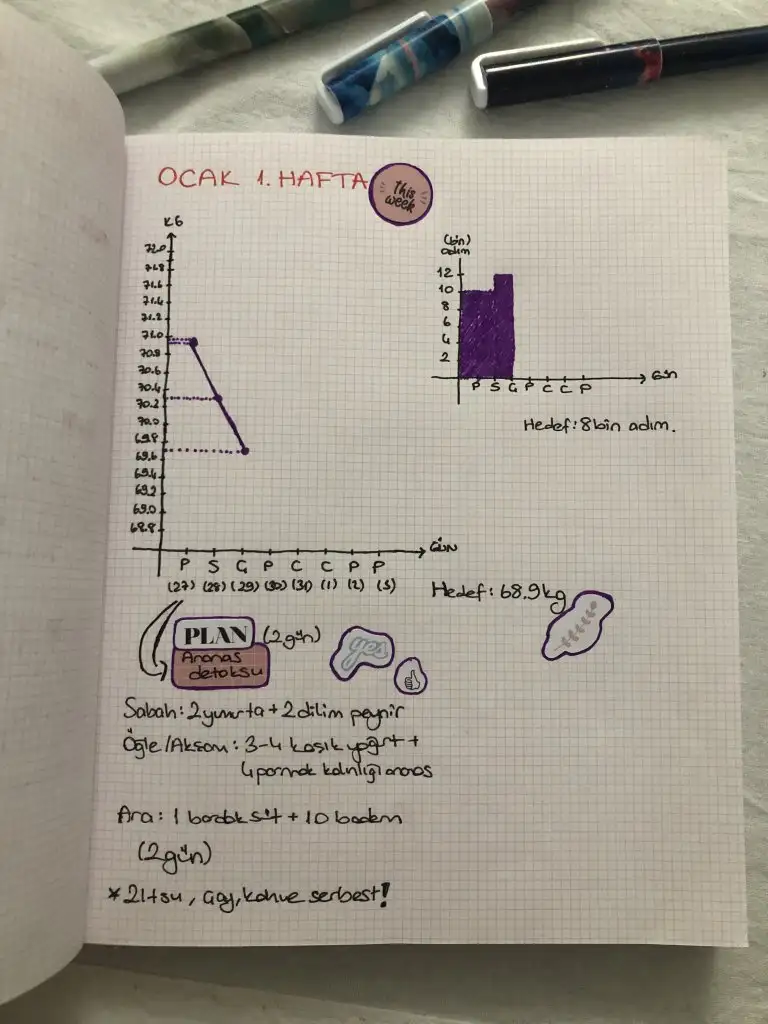 OCAK 1. HAFTA
This week
KG
72.0
71.8
71.6
71.4
71.2
71.0
70.8
70.6
70.4
70.2
70.0
69.8
69.6
69.4
69.2
69.0
68.8
GÜN
P S Ç P C C P P
(27) (28) (29) (30) (31) (1) (2) (3)
(bin)
adım
12
10
8
6
4
2
Gün
P S Ç P C C P
Hedef: 8bin adım.
Hedef: 68.9kg
PLAN (2gün)
Ananas
detoksu
yes
Sabah: 2 yumurta + 2 dilim peynir
Öğle/Akşam: 3-4 kaşık yoğurt +
4 parmak kalınlığı ananas
Ara: 1 bardak süt + 10 badem
(2gün)
* 2lt su, çay, kahve serbest!